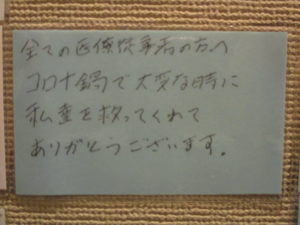 全ての医療従事者の方へ
コロナ禍で大変な時に
私達を救ってくれて
ありがとうございます。